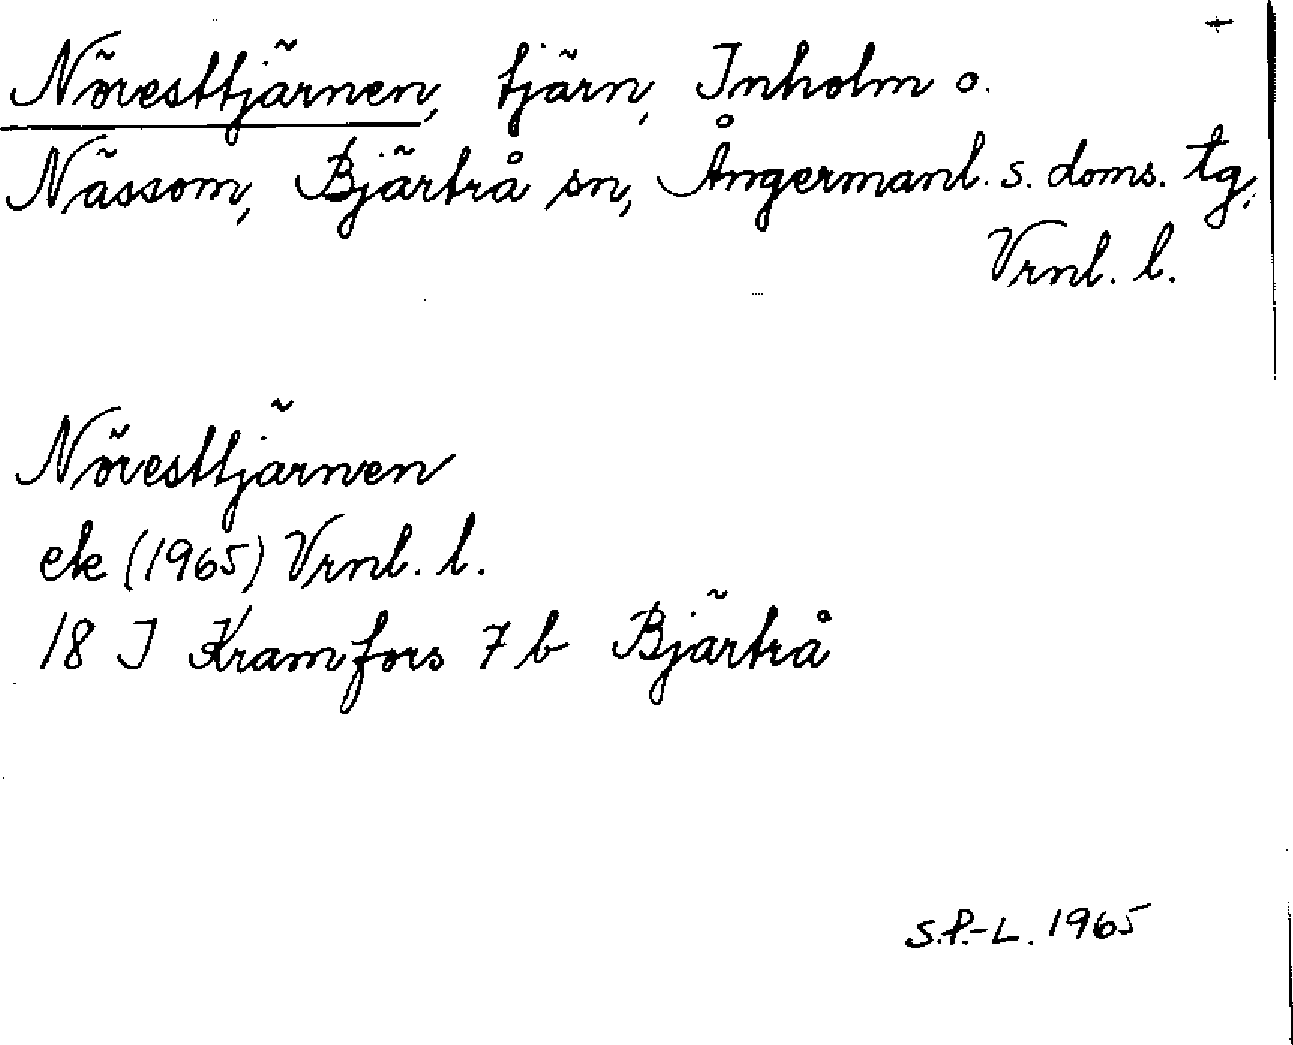 Nöresttjärnen, tjärn, Inholm o.
Nässom, Bjärtrå sn, Ångermanl. s. doms. tg,
Vrnl. l.
Nöresttjärnen
ek (1965) Vrnl. l.
18 I Kramfors 7 b Bjärtrå
S.P.-L. 1965